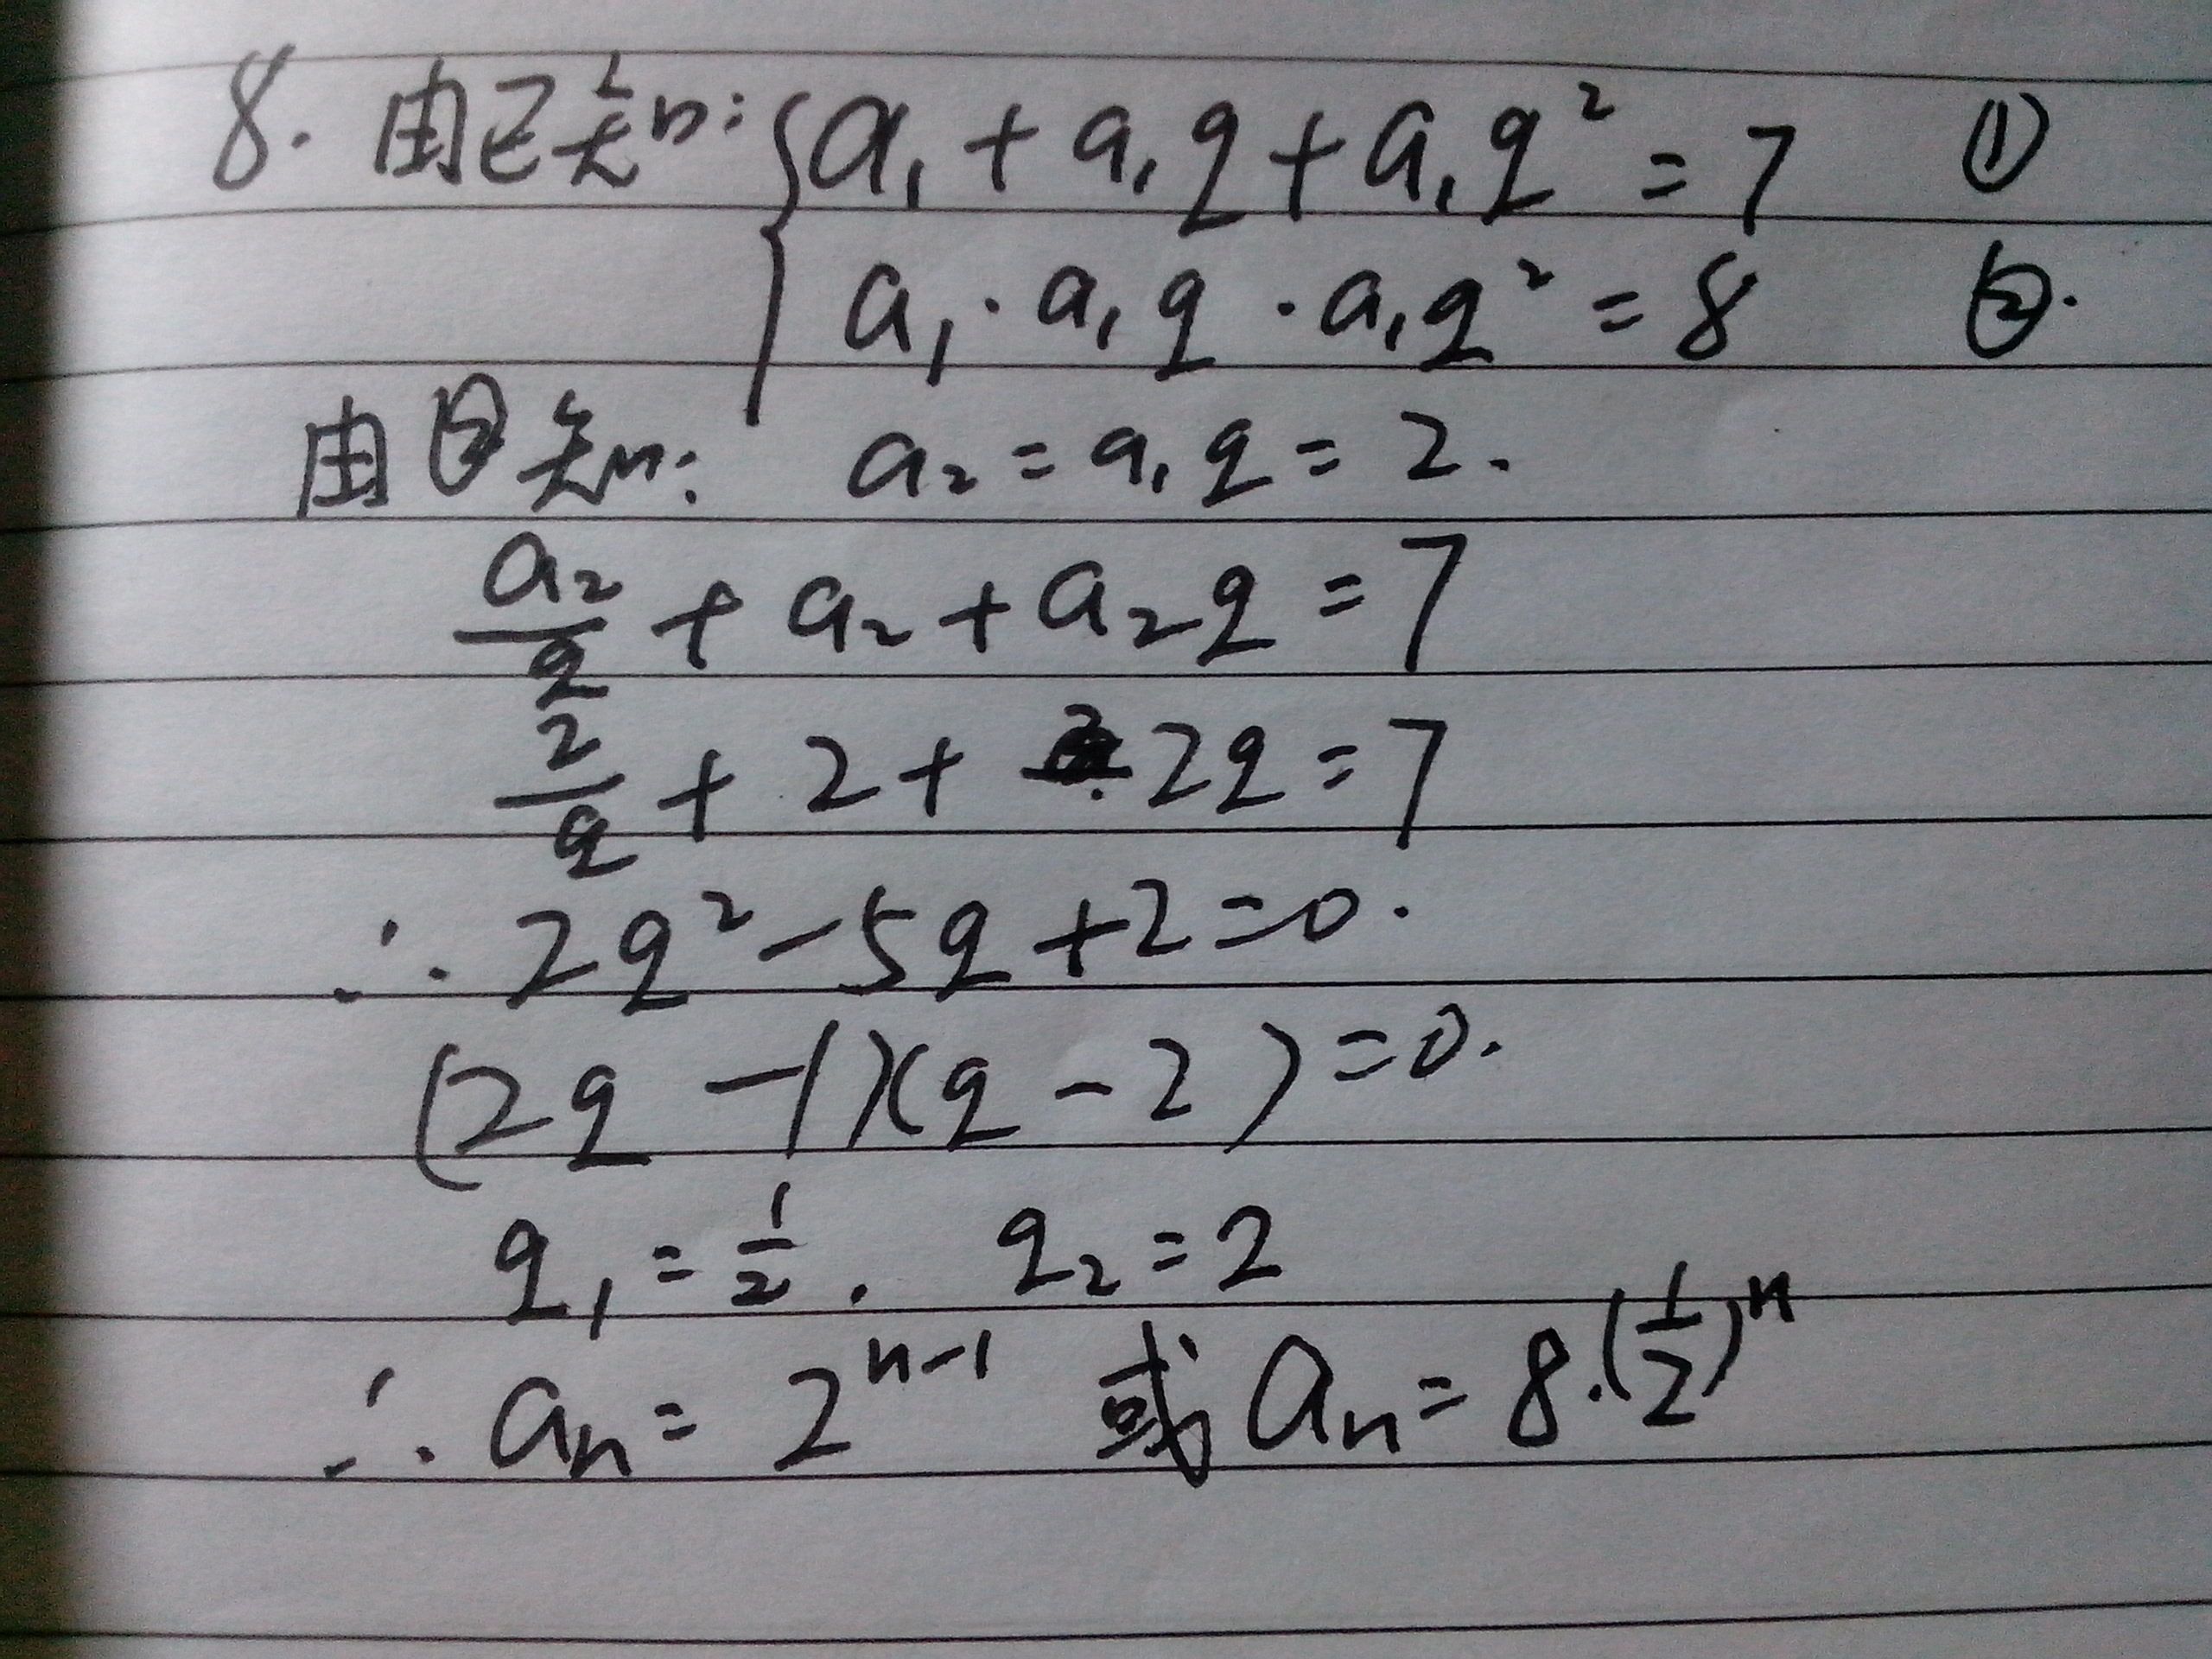 8. 由已知: { a₁ + a₁q + a₁q² = 7 ①
a₁ · a₁q · a₁q² = 8 ②.
由②知: a₂ = a₁q = 2.
a₂/q + a₂ + a₂q = 7
2/q + 2 + 2q = 7
∴ 2q² - 5q + 2 = 0.
(2q - 1)(q - 2) = 0.
q₁ = 1/2. q₂ = 2
∴ aₙ = 2ⁿ⁻¹ 或 aₙ = 8·(1/2)ⁿ